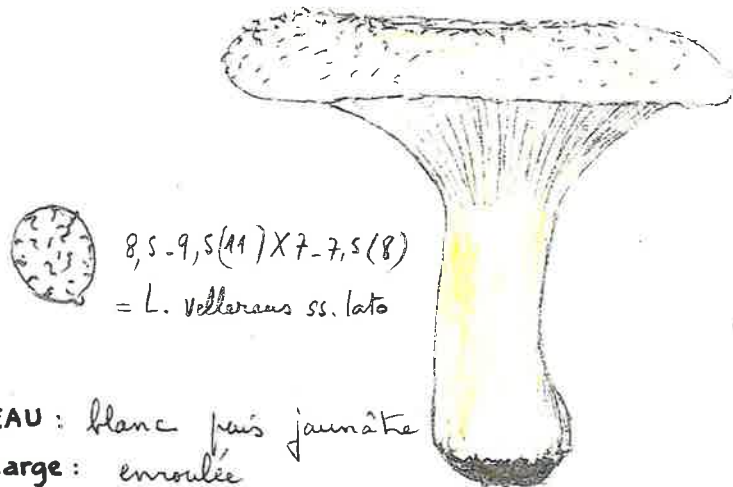 8,5-9,5(11)X7-7,5(8)
= L. vellereus ss. lato
EAU : blanc puis jaunâtre
arge : enroulée